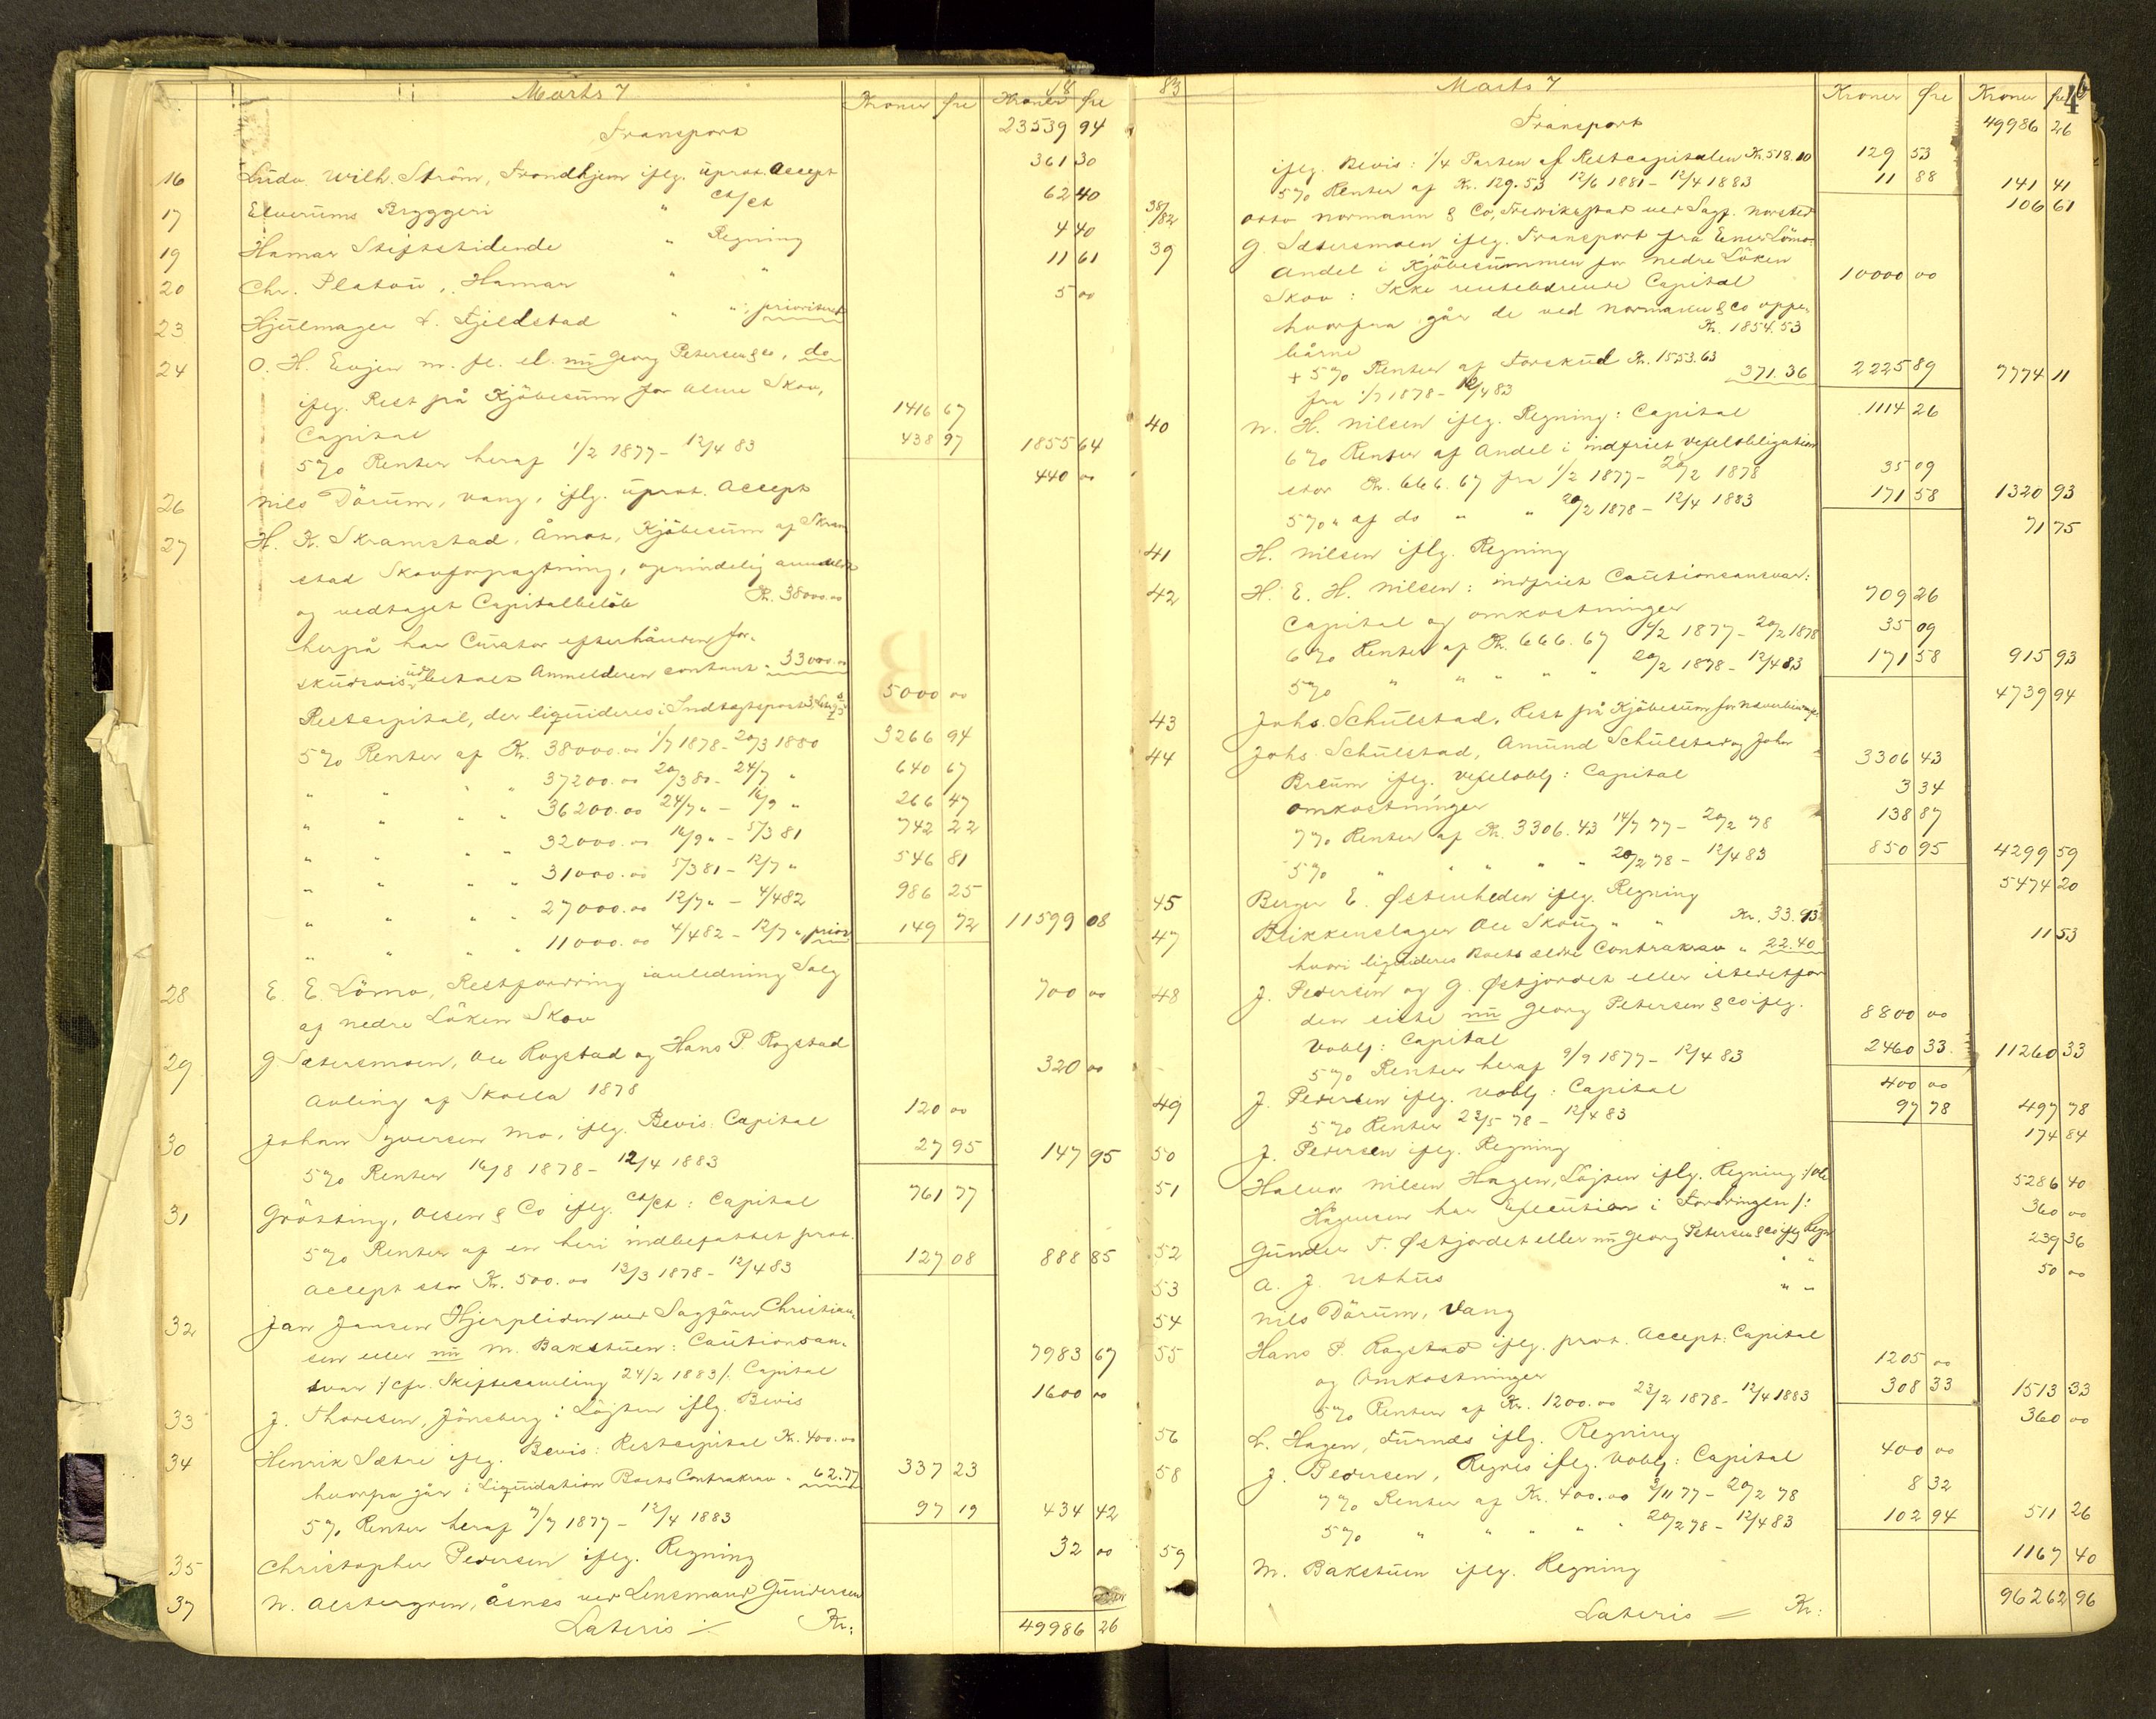 Marts 7
18
Kroner øre Kroner øre
Transport 23539 94
16 Ludv. Wilh. Ström, Trondhjem iflg. uprot. Accept 361 30
17 Elverums Bryggeri " Ct/Ct 62 40
19 Hamar Stiftstidende " Regning 4 40
20 Chr. Platou, Hamar " " 11 61
23 Hjulmager L. Fjeldstad " " , prioriteret 5 00
24 O. H. Evjen m. fl. el. nu Georg Petersen & Co, do
iflg. Rest på Kjöbesum for Skov,
Capital 1416 67
5% Renter heraf 1/2 1877 - 12/4 83 438 97 1855 64
26 Nils Dörum, Vang, iflg. uprot. Accept 440 00
27 H. K. Skramstad, Åmot, Kjöbesum af Skram
stad Skovforpagtning, oprindelig anmeldt
og vedtaget Capitalbelöb Kr. 38000.00
herpå har Curator efterhånden for-
skudsvis udbetalt Anmelderen contant " 33000.00
Restcapital, der liquideres i Indtægtspost 5000 00
5% Renter af Kr. 38000.00 1/7 1878 - 20/3 1880 3266 94
" " " " 37200.00 20/3 80 - 24/7 " 640 67
" " " " 36200.00 24/7 " - 16/9 " 266 47
" " " " 32000.00 16/9 " - 5/3 81 742 22
" " " " 31000.00 5/3 81 - 12/7 " 546 81
" " " " 27000.00 12/7 " - 4/4 82 986 25
" " " " 11000.00 4/4 82 - 12/7 " , prior 149 72 11599 08
28 E. E. Lömo, Restfordring i anledning Salg
af nedre Löken Skov 700 00
29 G. Sætersmoen, Ole Rogstad og Hans P. Rogstad
Avling af Skolla 1878 320 00
30 Johan Syversen Mo, iflg. Bevis: Capital 120 00
5% Renter 16/8 1878 - 12/4 1883 27 95 147 95
31 Grötting, Olsen & Co iflg. Ct/Ct: Capital 761 77
5% Renter af en heri indbefattet prot.
Accept stor Kr. 500.00 12/3 1878 - 12/4 83 127 08 888 85
32 Jan Jansen Hjerpliden ved Sagförer Christian-
sen eller nu M. Bakstuen: Cautionsan-
svar /: cfr. Skiftesamling 24/2 1883 /: Capital 7983 67
33 J. Thoresen, Jönsberg i Löjten iflg. Bevis 1600 00
34 Henrik Sætre iflg. Bevis: Restcapital Kr. 400.00
hvorpa går i Liquidation Boets Contrakrav " 62.77 337 23
5% Renter heraf 7/7 1877 - 12/4 1883 97 19 434 42
35 Christopher Pedersen iflg. Regning 32 00
37 N. Alstergren, Åsnes ved Lensmand Gundersen
Lateris Kr: 49986 26
83
Marts 7
46
Kroner øre Kroner øre
Transport 49986 26
iflg. Bevis: 1/4 Parten af Restcapitalen Kr. 518.10 129 53
5% Renter af Kr. 129.53 12/6 1881 - 12/4 1883 11 88 141 41
38/82 Otto Normann & Co, Fredrikstad ved Sagf. Norsted 106 61
39 G. Sætersmoen iflg. Transport fra Ener Lömo:
Andel i Kjöbesummen for nedre Löken
Skov: Ikke rentebærende Capital 10000 00
hvorfra går de ved Normann & Co oppe-
bårne Kr. 1854.53
+ 5% Renter af Forskud Kr. 1553.63
fra 1/7 1878 - 12/4 83 371.36 2225 89 7774 11
40 N. H. Nilsen iflg. Regning: Capital 1114 26
6% Renter af Andel i indfriet Vexelobligation
stor Kr. 666.67 fra 1/2 1877 - 20/2 1878 35 09
5% " af do " " 20/2 1878 - 12/4 1883 171 58 1320 93
41 H. Nilsen iflg. Regning 71 75
42 H. E. H. Nilsen: indfriet Cautionsansvar:
Capital og Omkostninger 709 26
6% Renter af Kr. 666.67 1/2 1877 - 20/2 1878 35 09
5% " " " " " 20/2 1878 - 12/4 83 171 58 915 93
43 Johs. Schulstad, Rest på Kjöbesum for 4739 94
44 Johs. Schulstad, Amund Schulstad og Johs
Breum iflg. Vexelobl: Capital 3306 43
Omkostninger 3 34
7% Renter af Kr. 3306.43 14/7 77 - 20/2 78 138 87
5% " " " " " 20/2 78 - 12/4 83 850 95 4299 59
45 Berger E. Østenheden iflg. Regning 5474 20
47 Blikkenslager Ole Skoug " " Kr. 33.93
hvori liquideres Boets ældre Contrakrav " 22.40 11 53
48 J. Pedersen og G. Østjordet eller istedetfor
den sidste nu Georg Petersen & Co iflg.
Vobl: Capital 8800 00
5% Renter heraf 9/9 1877 - 12/4 83 2460 33 11260 33
49 J. Pedersen iflg. Vobl: Capital 400 00
5% Renter 23/5 78 - 12/4 83 97 78 497 78
50 J. Pedersen iflg. Regning 174 84
51 Halvor Nilsen Hagen, Löjten iflg. Regning /: Ole
Hagensen har Execution i Fordringen /: 5286 40
52 Gunder T. Østjordet eller nu Georg Petersen & Co iflg Regn 360 00
53 A. J. Uthus " " 239 36
54 Nils Dörum, Vang " " 50 00
55 Hans P. Rogstad iflg. prot. Accept: Capital
og Omkostninger 1205 00
5% Renter af Kr. 1200.00 23/2 1878 - 12/4 1883 308 33 1513 33
56 L. Hagen, Furnæs iflg. Regning 360 00
58 J. Pedersen, iflg. Vobl: Capital 400 00
7% Renter af Kr. 400.00 2/11 77 - 20/2 78 8 32
5% " " " " " 20/2 78 - 12/4 83 102 94 511 26
59 M. Bakstuen iflg. Regning 1167 40
Lateris = Kr: 96262 96